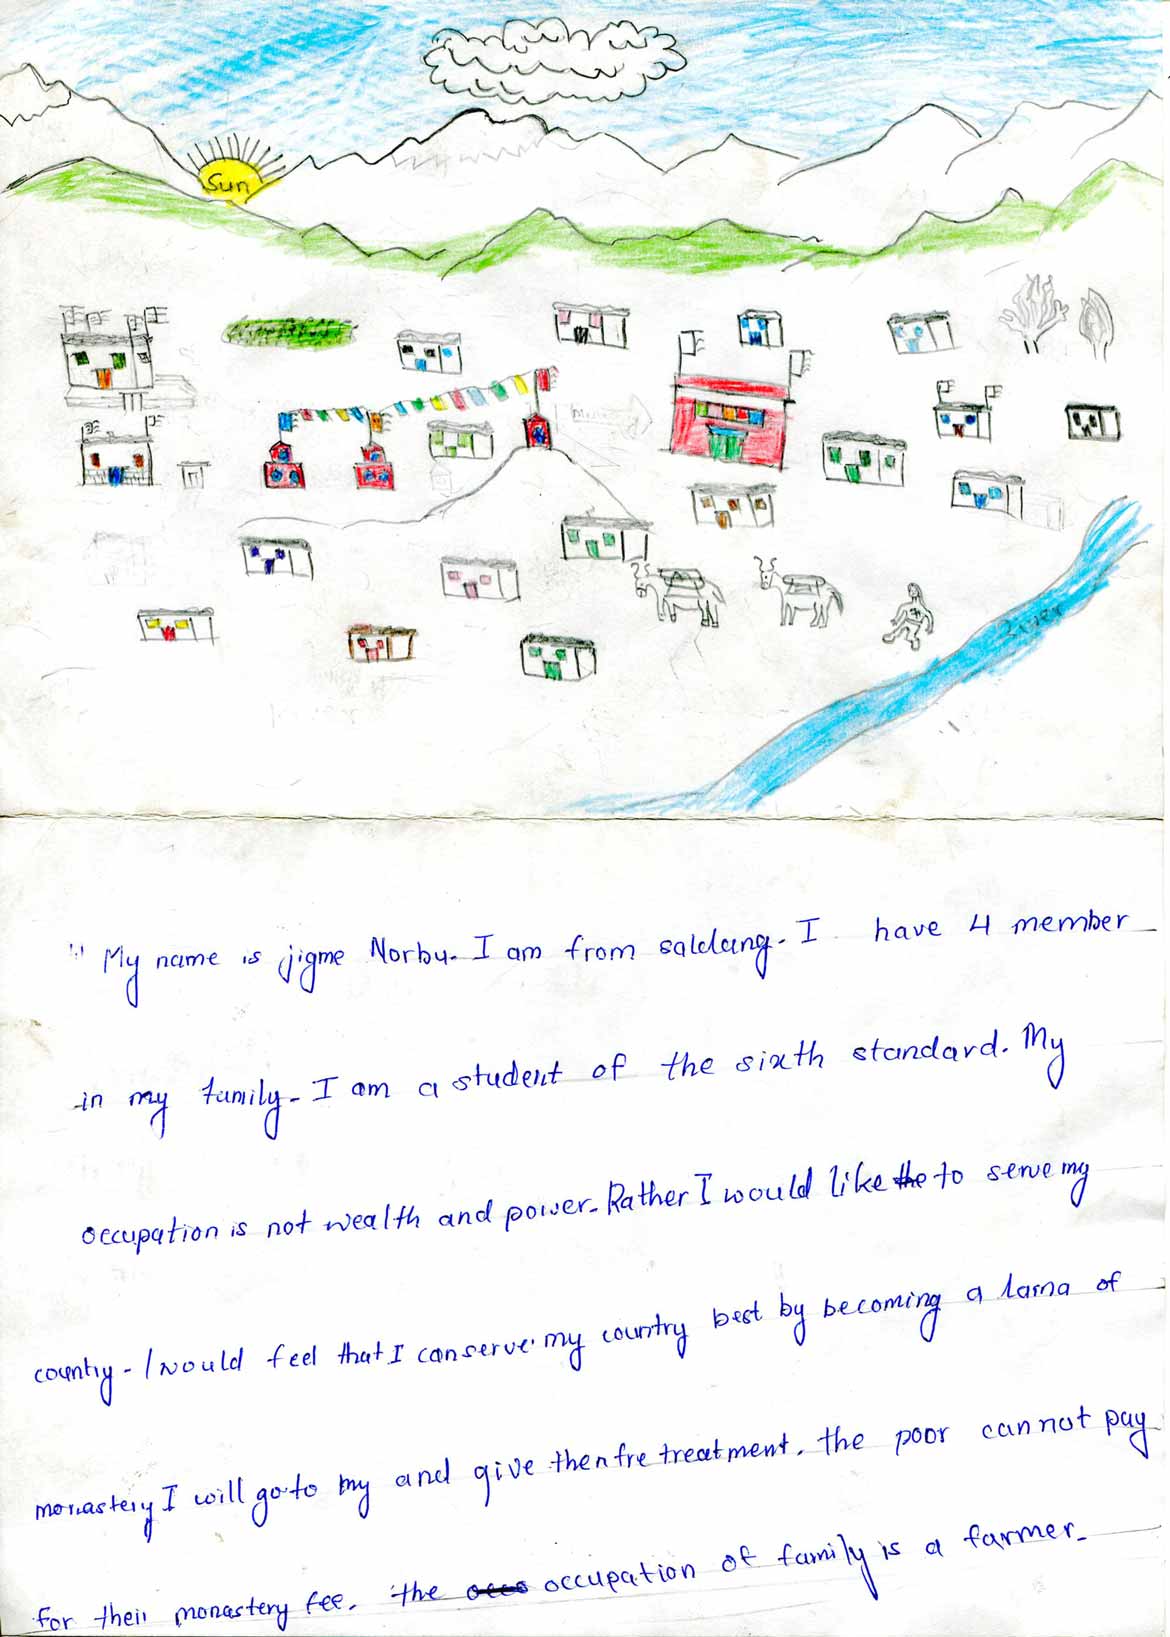 Sun
River
" My name is jigme Norbu. I am from saldang. I have 4 member
in my family. I am a student of the sixth standard. My
occupation is not wealth and power. Rather I would like the to serve my
country. I would feel that I can serve my country best by becoming a lama of
monastery I will go to my and give then fre treatment. the poor can not pay
for their monastery fee. the occupation of family is a farmer.